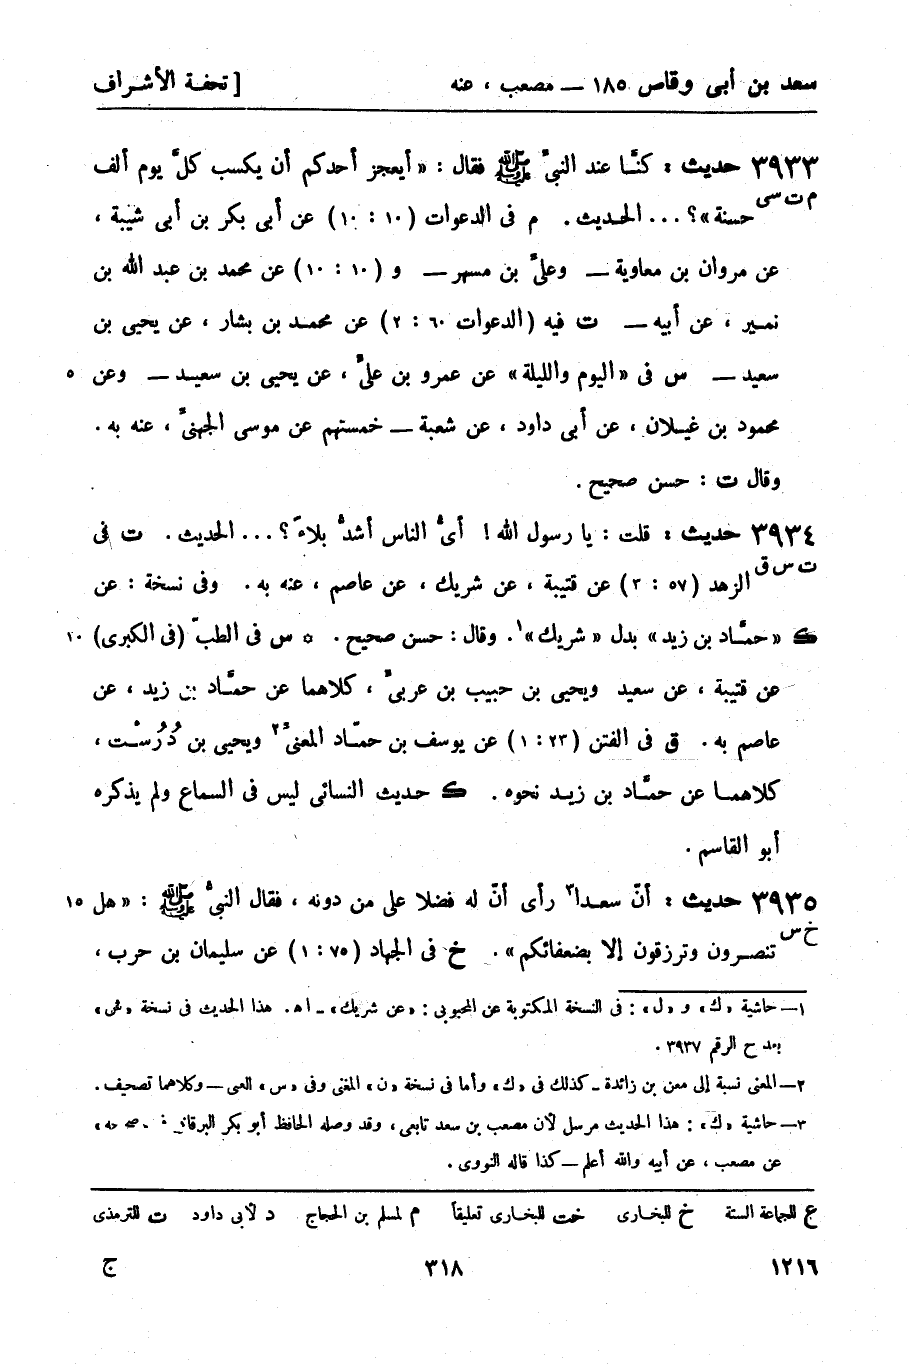 سعد بن أبى وقاص ١٨٥ — مصعب ، عنه [ تحفة الأشراف
٣٩٣٣ حديث : كنَّا عند النبىِّ ﷺ فقال : « أيعجز أحدكم أن يكسب كلَّ يوم ألف
م ت سى حسنة »؟ ... الحديث . م فى الدعوات (١٠ : ١٠) عن أبى بكر بن أبى شيبة ،
عن مروان بن معاوية — وعلىِّ بن مسهر — و (١٠ : ١٠) عن محمد بن عبد الله بن
نمير ، عن أبيه — ت فيه (الدعوات ٦٠ : ٢) عن محمد بن بشار ، عن يحيى بن
سعيد — س فى « اليوم والليلة » عن عمرو بن علىٍّ ، عن يحيى بن سعيد — وعن ٥
محمود بن غيلان ، عن أبى داود ، عن شعبة — خمستهم عن موسى الجهنىِّ ، عنه به .
وقال ت : حسن صحيح .
٣٩٣٤ حديث : قلت : يا رسول الله ! أىُّ الناس أشدُّ بلاءً ؟ ... الحديث . ت فى
ت س ق الزهد (٥٧ : ٢) عن قتيبة ، عن شريك ، عن عاصم ، عنه به . وفى نسخة : عن
ك « حمَّاد بن زيد » بدل « شريك »١ . وقال : حسن صحيح . * س فى الطبّ (فى الكبرى) ١٠
عن قتيبة ، عن سعيد ويحيى بن حبيب بن عربىٍّ ، كلاهما عن حمَّاد بن زيد ، عن
عاصم به . ق فى الفتن (٢٣ : ١) عن يوسف بن حمَّاد المعنىِّ٢ ويحيى بن دُرُسْت ،
كلاهما عن حمَّاد بن زيد نحوه . ك حديث النسائى ليس فى السماع ولم يذكره
أبو القاسم .
٣٩٣٥ حديث : أنّ سعدا٣ رأى أنّ له فضلا على من دونه ، فقال النبىُّ ﷺ : « هل ١٥
خ س تنصرون وترزقون إلا بضعفائكم » . خ فى الجهاد (٧٥ : ١) عن سليمان بن حرب ،
١— حاشية «ك» و «ل» : فى النسخة المكتوبة عن المحبوبى : «عن شريك» ـ اهـ . هذا الحديث فى نسخة «ش»
بعد ح الرقم ٣٩٣٧ .
٢— المعنى نسبة إلى معن بن زائدة ـ كذلك فى «ك» وأما فى نسخة «ن» المغنى وفى «س» العمى — وكلاهما تصحيف .
٣— حاشية «ك» : هذا الحديث مرسل لأن مصعب بن سعد تابعى ، وقد وصله الحافظ أبو بكر البرقانى
عن مصعب ، عن أبيه والله أعلم — كذا قاله النووى .
ع للجماعة الستة خ للبخارى خت للبخارى تعليقاً م لمسلم بن الحجاج د لأبى داود ت للترمذى
١٢١٦ ٣١٨ ج